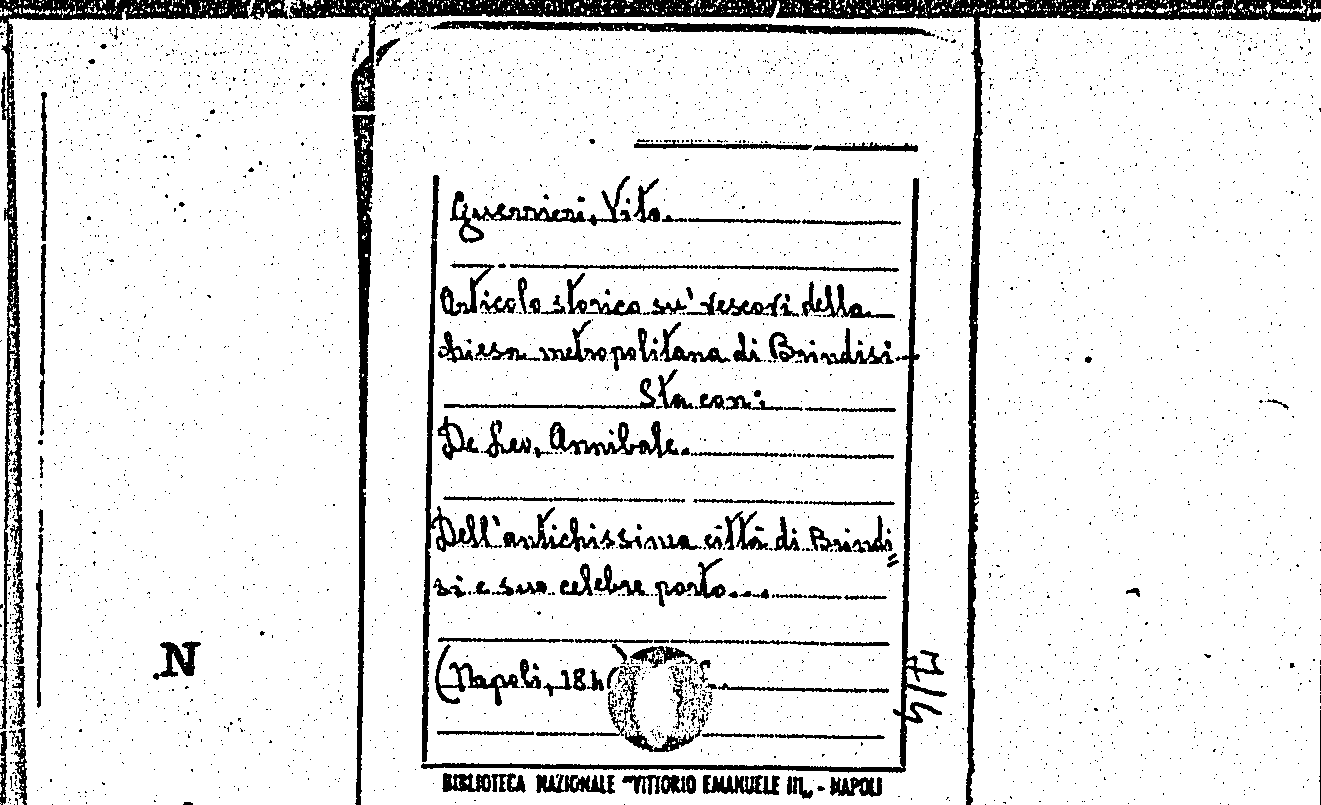 Guerrieri, Vito.
Articolo storico su' vescovi della
chiesa metropolitana di Brindisi.
Sta con:
De Leo, Annibale.
Dell'antichissima città di Brindi
si e suo celebre porto...
(Napoli, 184
7/4
N
BIBLIOTECA NAZIONALE "VITTORIO EMANUELE III„ - NAPOLI